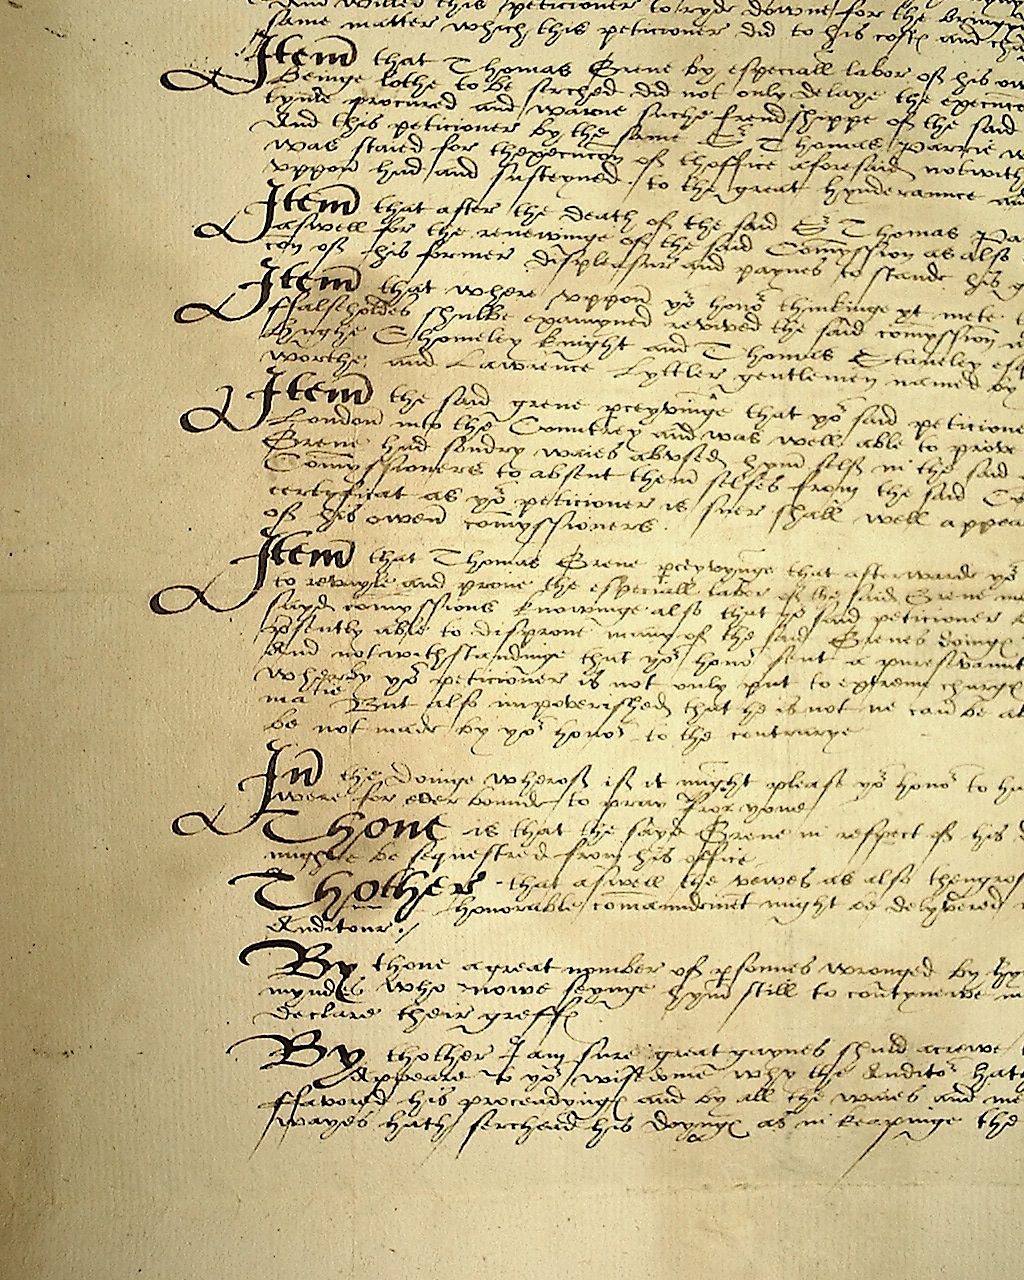 And willed this peticioner to ryde downe for the bringing
same matter which this peticioner did to his cost and
Item that Thomas Grene by especiall labor of his
beinge lothe to be serched did not only delaye the
tyme procured and wanne suche frendshippe of the said
And this peticioner by the same Sr Thomas Parrie
was staied for thexecucon of thoffice aforesaid notwith
uppon hand and susteyned to the great hynderannce
Item that after the death of the said Sr Thomas Pa
aswell for the renewinge of the said Comyssion as also
con of his former displeasur and paynes to stande his
Item that where uppon yor honor thinkinge yt mete
ffalsehoddes shulbe examyned revived the said comyssion
Hughe Cholmeley knight and Thomas Staneley
worthe and Lawrence Lyttler gentlemen named by
Item the said grene pceyvinge that yor said peticione
London into the Countrey and was well able to prove
Grene had sondry waies abused hym self in the said
Comyssioners to absent them selfes from the said
certyficat as yor peticioner is suer shall well appea
of his owen comyssioners.
Item that Thomas Grene pceyvynge that afterwards yor
to and prove the especiall labor of the said Grene
sayd comyssions knowinge also that yor said peticioner
psently able to disprove many of the said Grenes doings
And notwithstandinge that yor honor sent a pursevannt
wherby yor peticioner is not only put to extreme charge
matie But also impoverished that he is not ne can be
be not made by yor honor to the contrarye
In the doinge wherof if it might please yor honor to
were for ever bounde to pray for youe
Thone is that the sayd Grene in respect of his
might be sequestred from his office
Thother that aswell the vewes as also thengros
honorable comaundment might be delyvered
Auditour./
By thone a great nomber of psonnes wronged by
myndes who nowe seynge hym still to contynewe
declare their greffs
By thother I am sure great gaynes shuld acrewe
Appeare to yor wisdome why the Auditor
ffavored his proceadyngs and by all the waies and
wayes hath serched his doyngs as in keapinge the